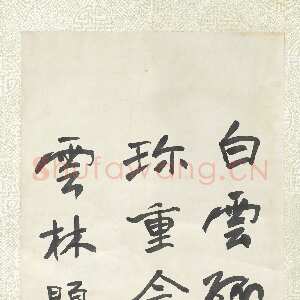 白雲
珎重
雲林題
ShufaWang.CN